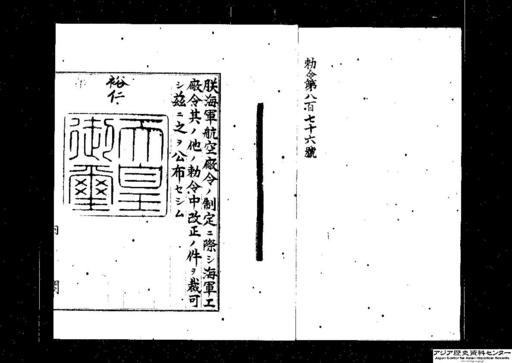 勅令第八百七十六號
朕海軍航空廠令ノ制定ニ際シ海軍工
廠令其ノ他ノ勅令中改正ノ件ヲ裁可
シ茲ニ之ヲ公布セシム
裕仁
天皇
御璽
内閣
アジア歴史資料センター
Japan Center for Asian Historical Records